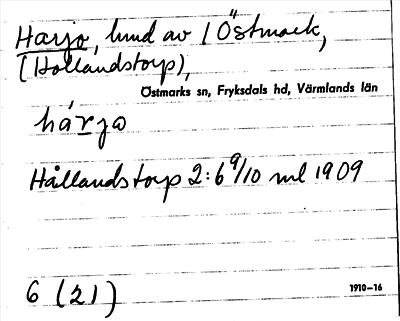 Harjo, lund av 1 Östmark,
(Hollandstorp),
Östmarks sn, Fryksdals hd, Värmlands län
hárjo
Hållandstorp 2:6 9/10 ml 1909
6 (21)
1910–16